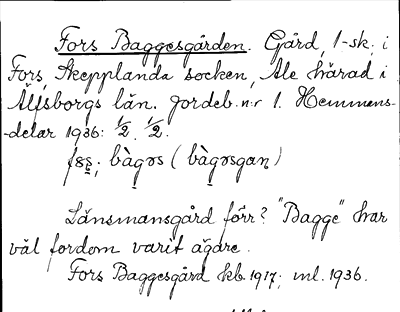 Fors Baggesgården. Gård, 1-sk, i
Fors, Skepplanda socken, Ale härad i
Älfsborgs län. Jordeb. n:r 1. Hemmens-
-delar 1936: 1/2. 1/2.
bàgǝs (bàgǝsgaṇ)
Länsmansgård förr? "Bagge" har
väl fordom varit ägare.
Fors Baggesgård kb. 1917; ml. 1936.